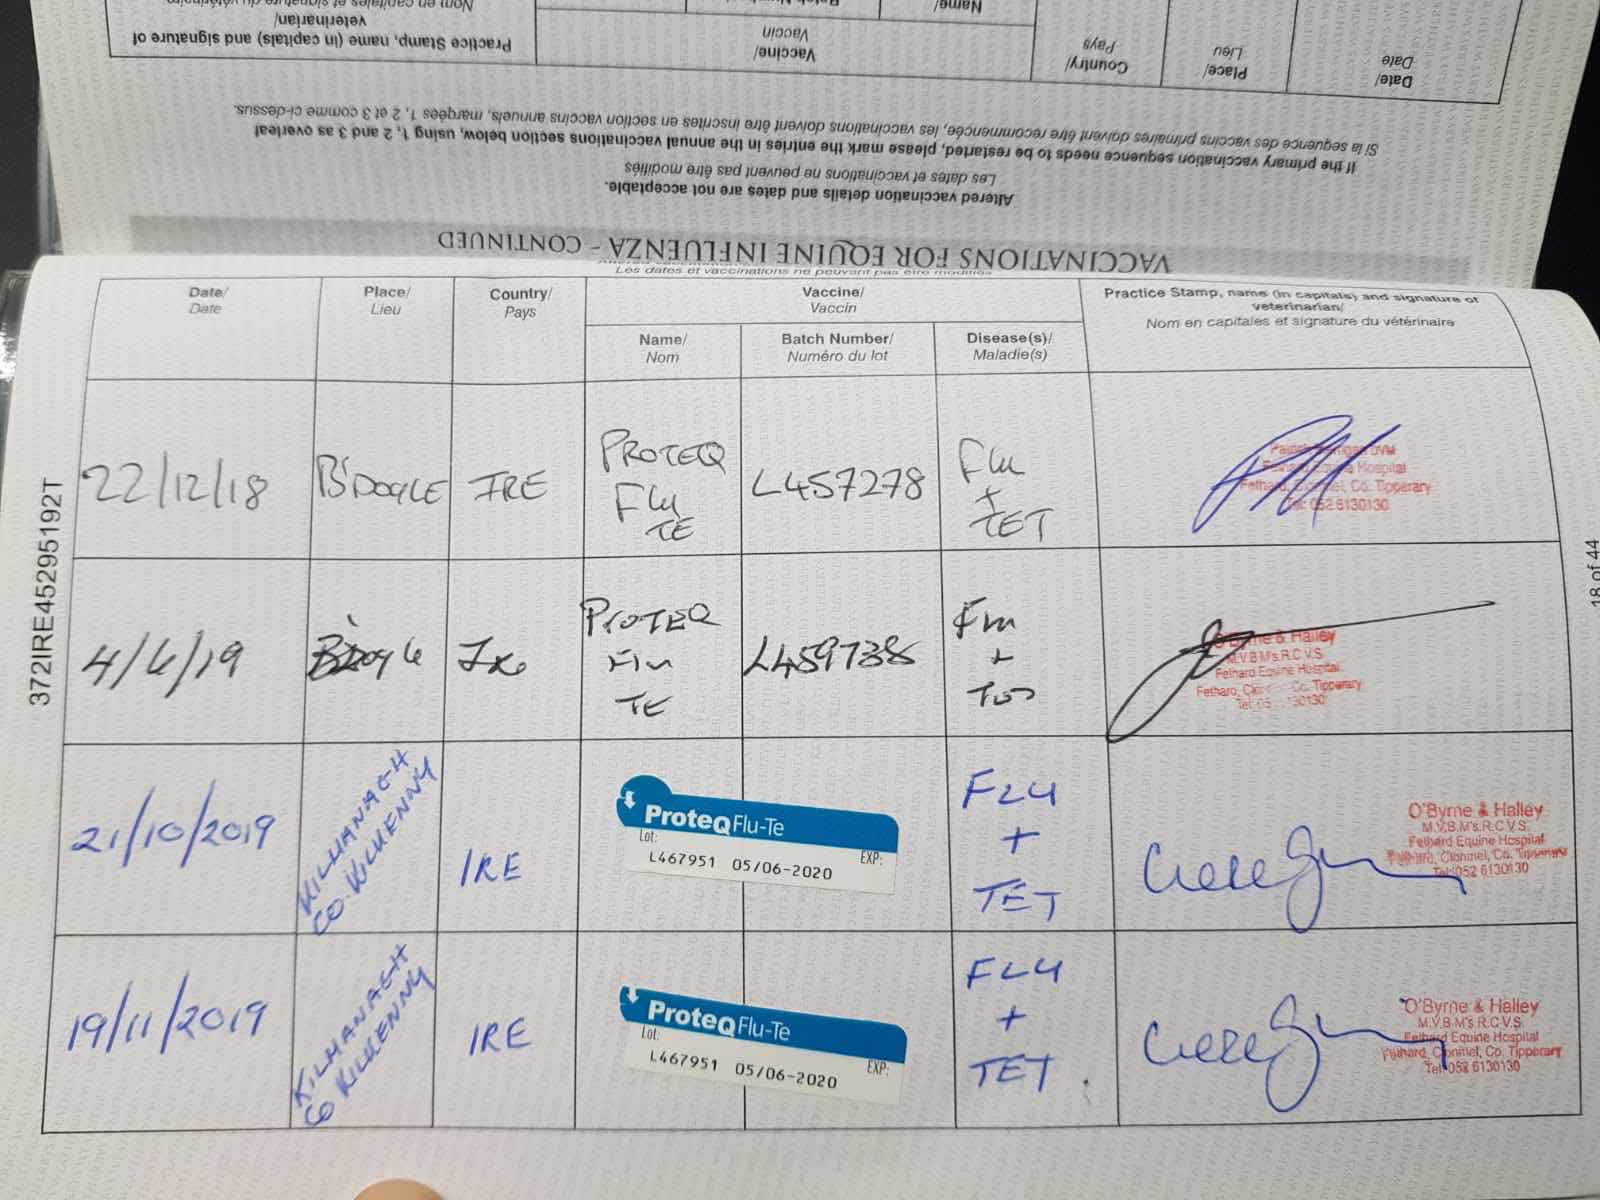 Nom en capitales et signature du vétérinaire
Practice Stamp, name (in capitals) and signature of
veterinarian/
Name/
Vaccine/
Vaccin
Country/
Pays
Place/
Lieu
Date/
Date
Si la sequence des vaccins primaires doivent être recommencée, les vaccinations doivent être inscrites en section vaccins annuels, marqées 1, 2 et 3 comme ci-dessus.
If the primary vaccination sequence needs to be restarted, please mark the entries in the annual vaccinations section below, using 1, 2 and 3 as overleaf
Les dates et vaccinations ne peuvent pas être modifiés
Altered vaccination details and dates are not acceptable.
VACCINATIONS FOR EQUINE INFLUENZA - CONTINUED
Les dates et vaccinations ne peuvent pas être modifiés
Date/
Date
Place/
Lieu
Country/
Pays
Vaccine/
Vaccin
Name/
Nom
Batch Number/
Numéro du lot
Disease(s)/
Maladie(s)
Practice Stamp, name (in capitals) and signature of
veterinarian/
Nom en capitales et signature du vétérinaire
372IRE45295192T
18 of 44
22/12/18
B'DOYLE
IRE
PROTEQ
Flu
TE
L457278
Flu
+
TET
Fethard Equine Hospital
Fethard, Clonmel, Co. Tipperary
Tel: 052 6130130
4/6/19
B'Doyle
Ire
PROTEQ
Flu
TE
L459738
Flu
+
O'Byrne & Halley
M.V.B M's.R.C.V.S.
Fethard Equine Hospital
Co. Tipperary
21/10/2019
KILMANAGH
CO. KILKENNY
IRE
ProteqFlu-Te
Lot: EXP:
L467951 05/06-2020
FLU
+
TET
O'Byrne & Halley
M.V.B.M's.R.C.V.S.
Fethard Equine Hospital
Fethard, Clonmel, Co. Tipperary
Tel: 052 6130130
19/11/2019
KILMANAGH
CO KILKENNY
IRE
ProteqFlu-Te
Lot: EXP:
L467951 05/06-2020
FLU
+
TET
O'Byrne & Halley
M.V.B.M's.R.C.V.S.
Fethard Equine Hospital
Fethard, Clonmel, Co. Tipperary
Tel: 052 6130130